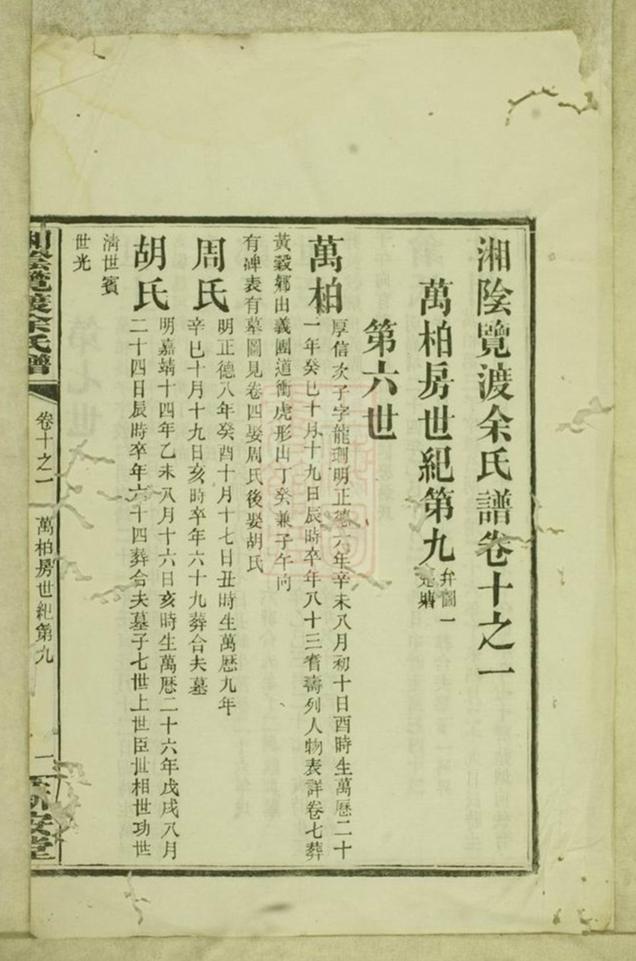 湘陰覽渡余氏譜卷十之一
萬柏房世紀第九 弁圖一
第六世
萬柏 厚信次子字龍珊明正德六年辛未八月初十日酉時生萬歷二十
一年癸巳十月十九日辰時卒年八十三耆壽列人物表詳卷七葬
黃穀鄉出義團道衝虎形山丁癸兼子午向
有碑表有墓圖見卷四娶周氏後娶胡氏
周氏 明正德八年癸酉十月十七日丑時生萬歷九年
辛巳十月十九日亥時卒年六十九葬合夫墓
胡氏 明嘉靖十四年乙未八月十六日亥時生萬歷二十六年戊戌八月
二十四日辰時卒年六十四葬合夫墓子七世上世臣世相世功世
清世賓
世光
湘陰覽渡余氏譜
卷十之一
萬柏房世紀第九
一
新安堂